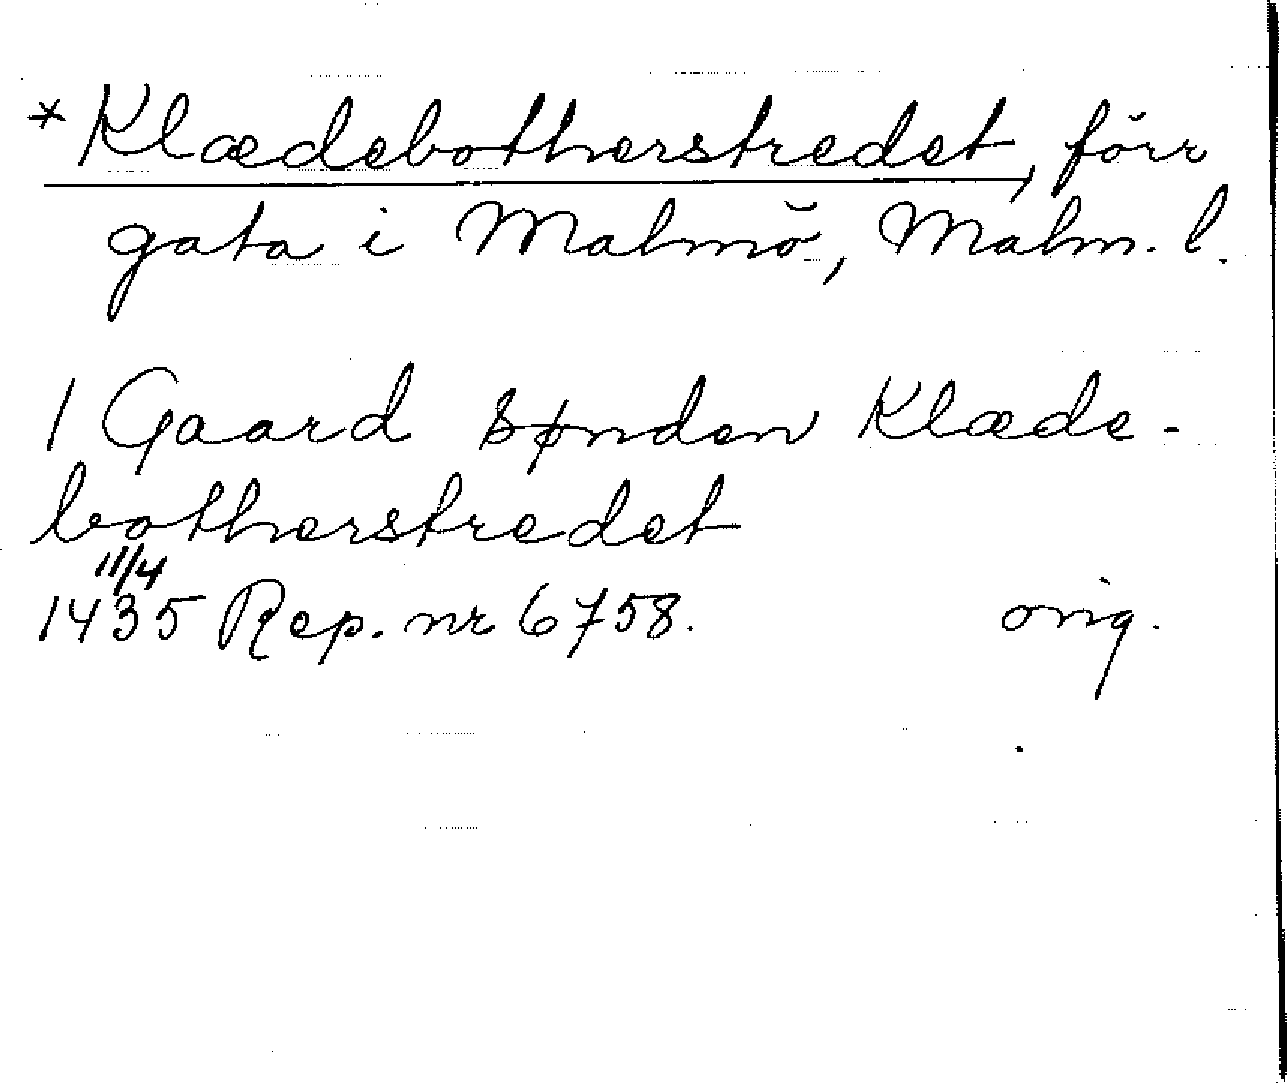 *Klædebotherstredet, förr
gata i Malmö, Malm. l.
1 Gaard sønden Klæde-
botherstredet
11/4
1435 Rep. nr 6758. orig.